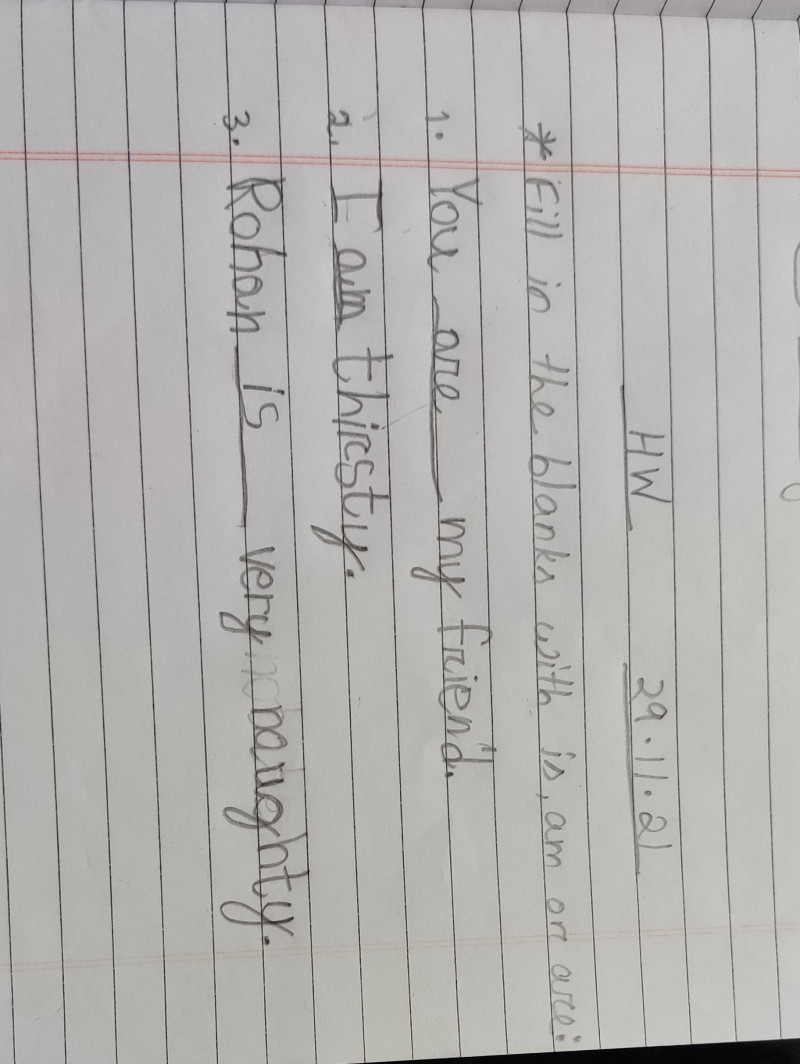 HW 29.11.21
* Fill in the blanks with is, am or are:
1. You are my friend.
2. I am thirsty.
3. Rohan is very naughty.